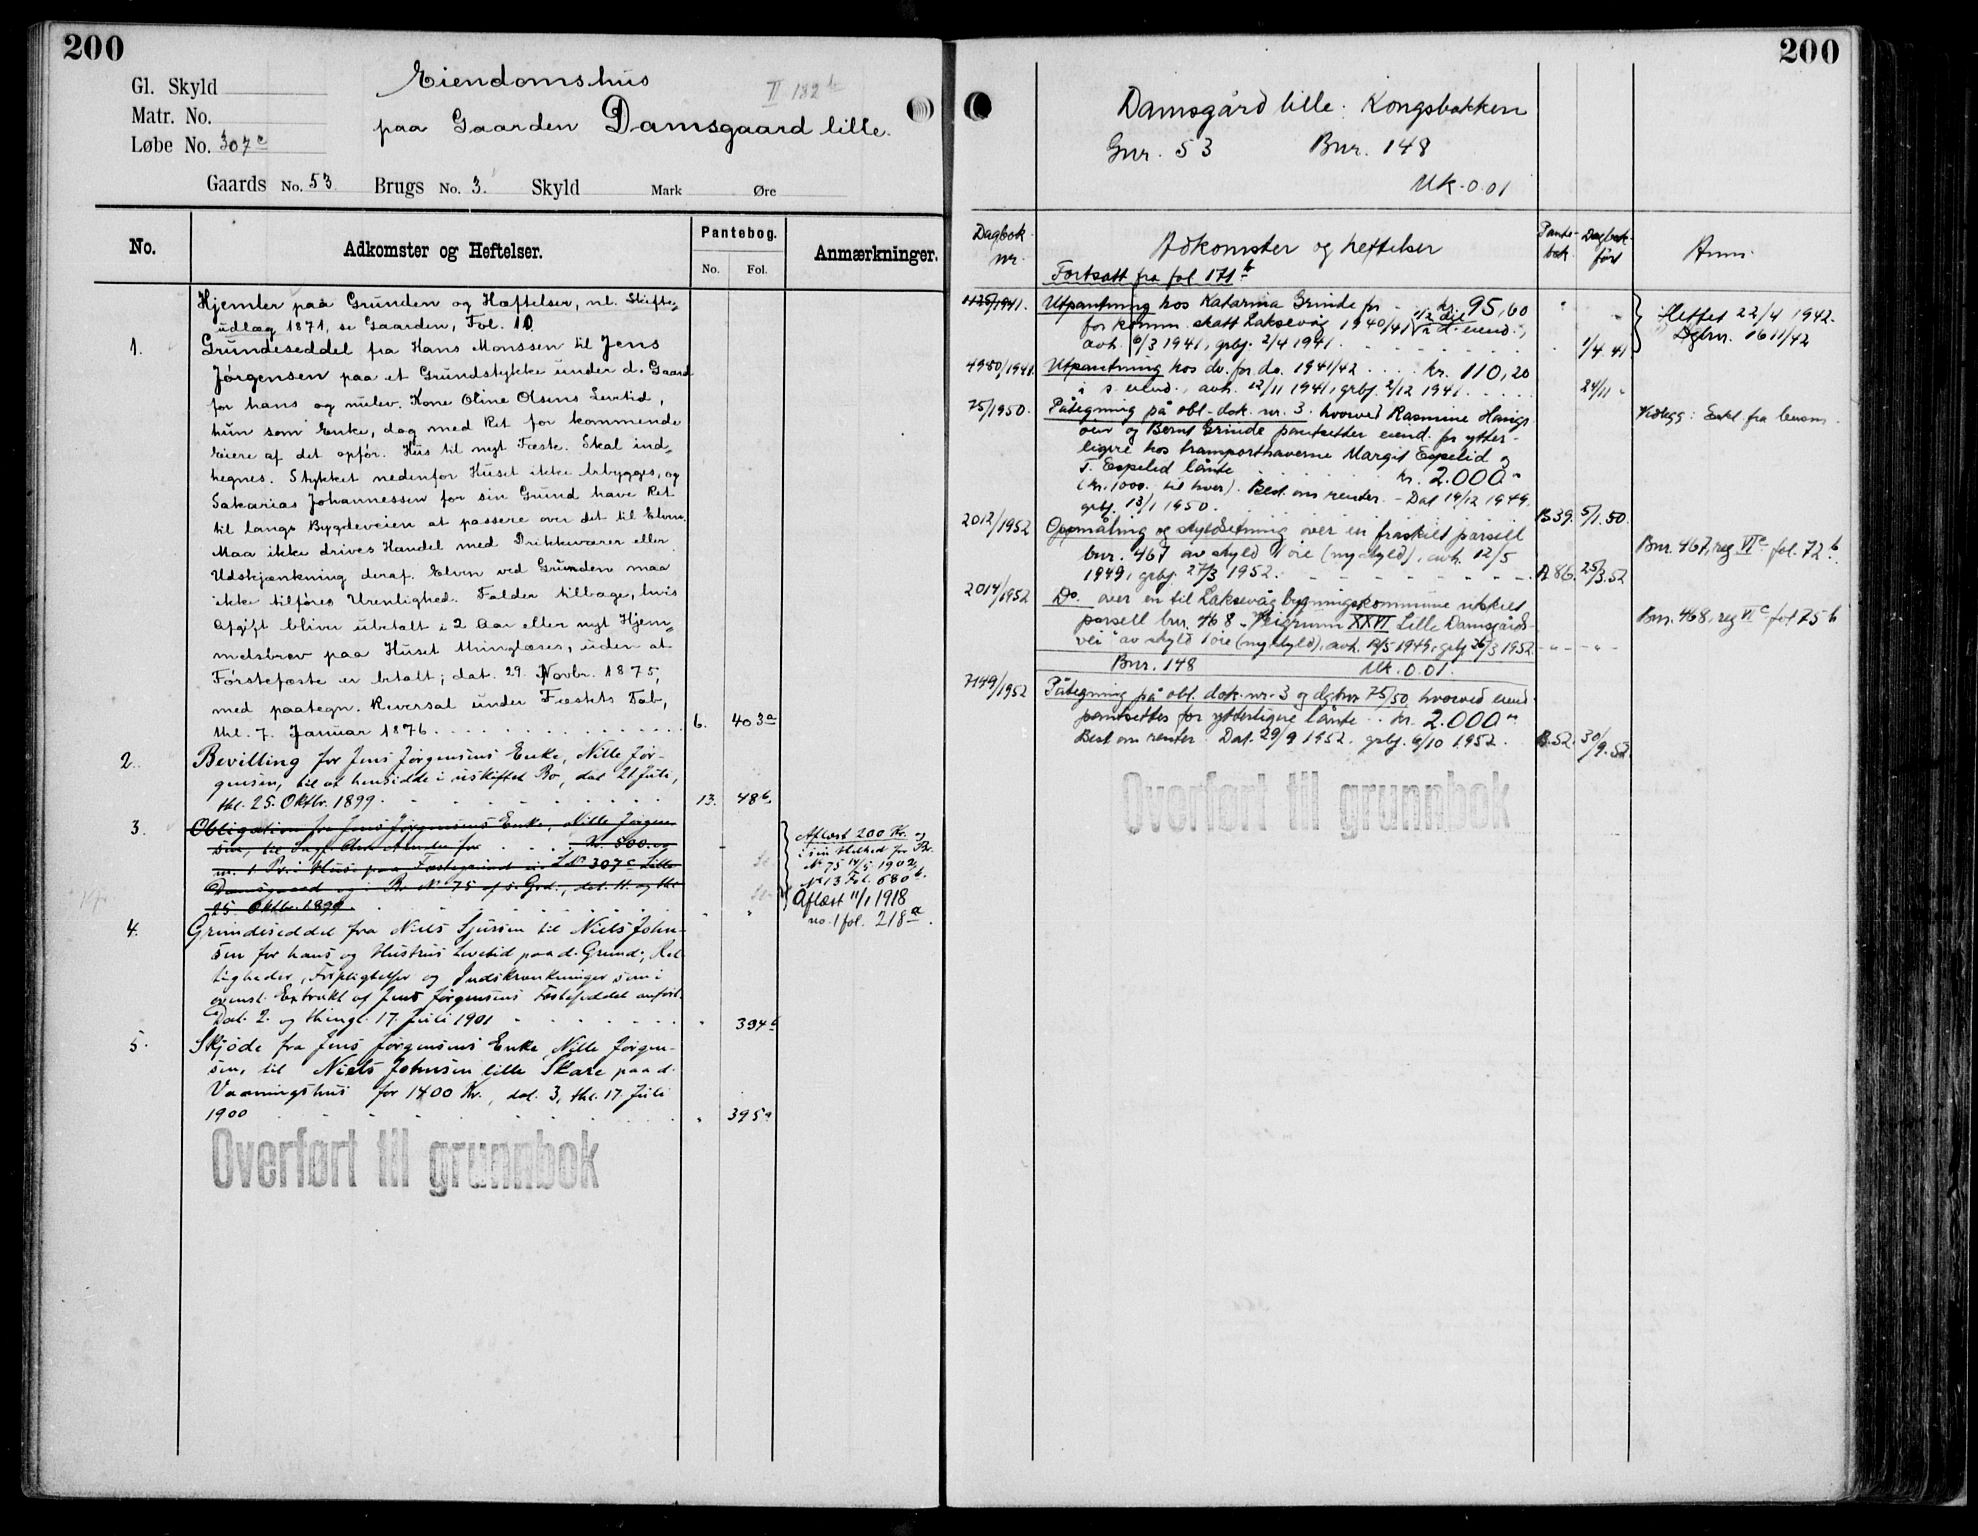 200
Gl. Skyld
Matr. No.
Løbe No. 307c
Eiendomshus
II 182b
paa Gaarden Damsgaard lille.
Gaards No. 53 Brugs No. 3. Skyld Mark Øre
No. Adkomster og Heftelser. Pantebog. No. Fol. Anmærkninger.
Hjemler paa Grunden og Hæftelser, nl. Skifte-
udlæg 1871, se Gaarden, Fol. 10
1. Grundeseddel fra Hans Monssen til Jens
Jørgensen paa et Grundstykke under d. Gaard
for hans og nulev. Kone Oline Olsens Levetid,
hun som Enke, dog med Ret for kommende
Eiere af det opför. Hus til nyt Fæste. Skal ind=
hegnes. Stykket nedenfor Huset ikke bebygges, og
Sakarias Johannessen for sin Grund have Ret
til langs Bygdeveien at passere over det til Elven.
Maa ikke drives Handel med Drikkevarer eller
Udskjænkning deraf. Elven ved Grunden maa
ikke tilføres Urenlighed. Falder tilbage, hvis
Afgift bliver ubetalt i 2 Aar eller nyt Hjem=
melsbrev paa Huset thinglæses, uden at
Førstefæste er betalt; dat. 29. Novbr. 1875,
med paategn. Reversal under Fæstets Tab,
thl. 7. Januar 1876. 6. 403a
2. Bevilling for Jens Jørgensens Enke, Nille Jør-
gensen, til at hensidde i uskiftet Bo, dat 21 Juli,
thl. 25. Oktbr. 1899. 13. 48b
3. Obligation fra Jens Jørgensens Enke, Nille Jørgen-
sen, til for Kr. 500. og
m. 1 Pr. i Huse paa Fæstegrund L No 307c Lille
Damsgaard og Br No 75 af s. Grd., dat. 11. og thl.
25. Oktbr. 1899.
Aflæst 200 Kr. og
i sin Helhed for Br.
No 75 14/5 1902
No 13 Fol. 680b.
Aflæst 11/1 1918
no. 1 fol. 218a.
4. Grundeseddel fra Niels Sjursen til Niels John-
sen for hans og Hustrus Levetid paa d. Grund; Ret-
tigheder, Forpligtelser og Indskrænkninger som i
ovenst. Extrakt af Jens Jørgensens Fæsteseddel anført.
Dat. 2. og thingl. 17. Juli 1901 " 394b
5. Skjøde fra Jens Jørgensens Enke, Nille Jørgen-
sen, til Niels Johnsen lille Skare paa d.
Vaaningshus for 1400 Kr., dat. 3, thl. 17. Juli
1900 " 395a
Overført til grunnbok
200
Damsgård lille. Kongsbakken
Gnr. 53 Bnr. 148
Mk. 0.01
Dagbok nr. Adkomster og heftelser Pante-bok Dagbok ført Anm.
Fortsatt fra fol 171b
1125/1941. Utpantning hos Katarina Grinde for kr. 95,60
for komm. skatt Laksevåg 1940/41 i 1/2 del i d. eiend.,
avh. /3 1941, grbj. 2/4 1941. 1/4.41
Slettet 22/4 1942.
Dgbnr. 1611/42
4950/1941. Utpantning hos do. for do. 1941/42 kr. 110,20
i s. eiend., avh. 12/11 1941, grbj. 2/12 1941. 24/11 "
75/1950. Påtegning på obl. dok. nr. 3. hvorved Rasmine Haugs-
øen og Bernt Grinde pantsetter eiend. for ytter-
ligere hos transporthaverne Margit Espelid og
T. Espelid lånte kr. 2.000 "
(kr. 1000. til hver). Best. om renter. - Dat 19/12 1949.
grbj. 13/1 1950. B 39. 5/1.50.
2012/1952 Oppmåling og skyldsetning over en fraskilt parsell
bnr. 467 av skyld 1 øre (ny skyld), avh. 12/5
1949, grbj. 27/3 1952. A 86. 25/3.52
Bnr. 467, reg VIc fol. 72b
2014/1952 Do. over en til Laksevåg bygningskommune utskilt
parsell bnr. 468 „Veigrunn XXVI Lille Damsgårds-
vei" av skyld 1 øre (ny skyld), avh. 12/5 1949, grbj 26/3 1952. - " - - " -
Bnr. 468, reg VIc fol 75b
Bnr. 148 Mk. 0.01.
7149/1952 Påtegning på obl. dok. nr. 3 og dgbnr 75/50 hvorved eiend.
pantsettes for ytterligere lånte kr. 2.000 "
Best om renter. Dat. 29/9 1952. grbj. 6/10 1952. B. 52. 30/9.52
Overført til grunnbok